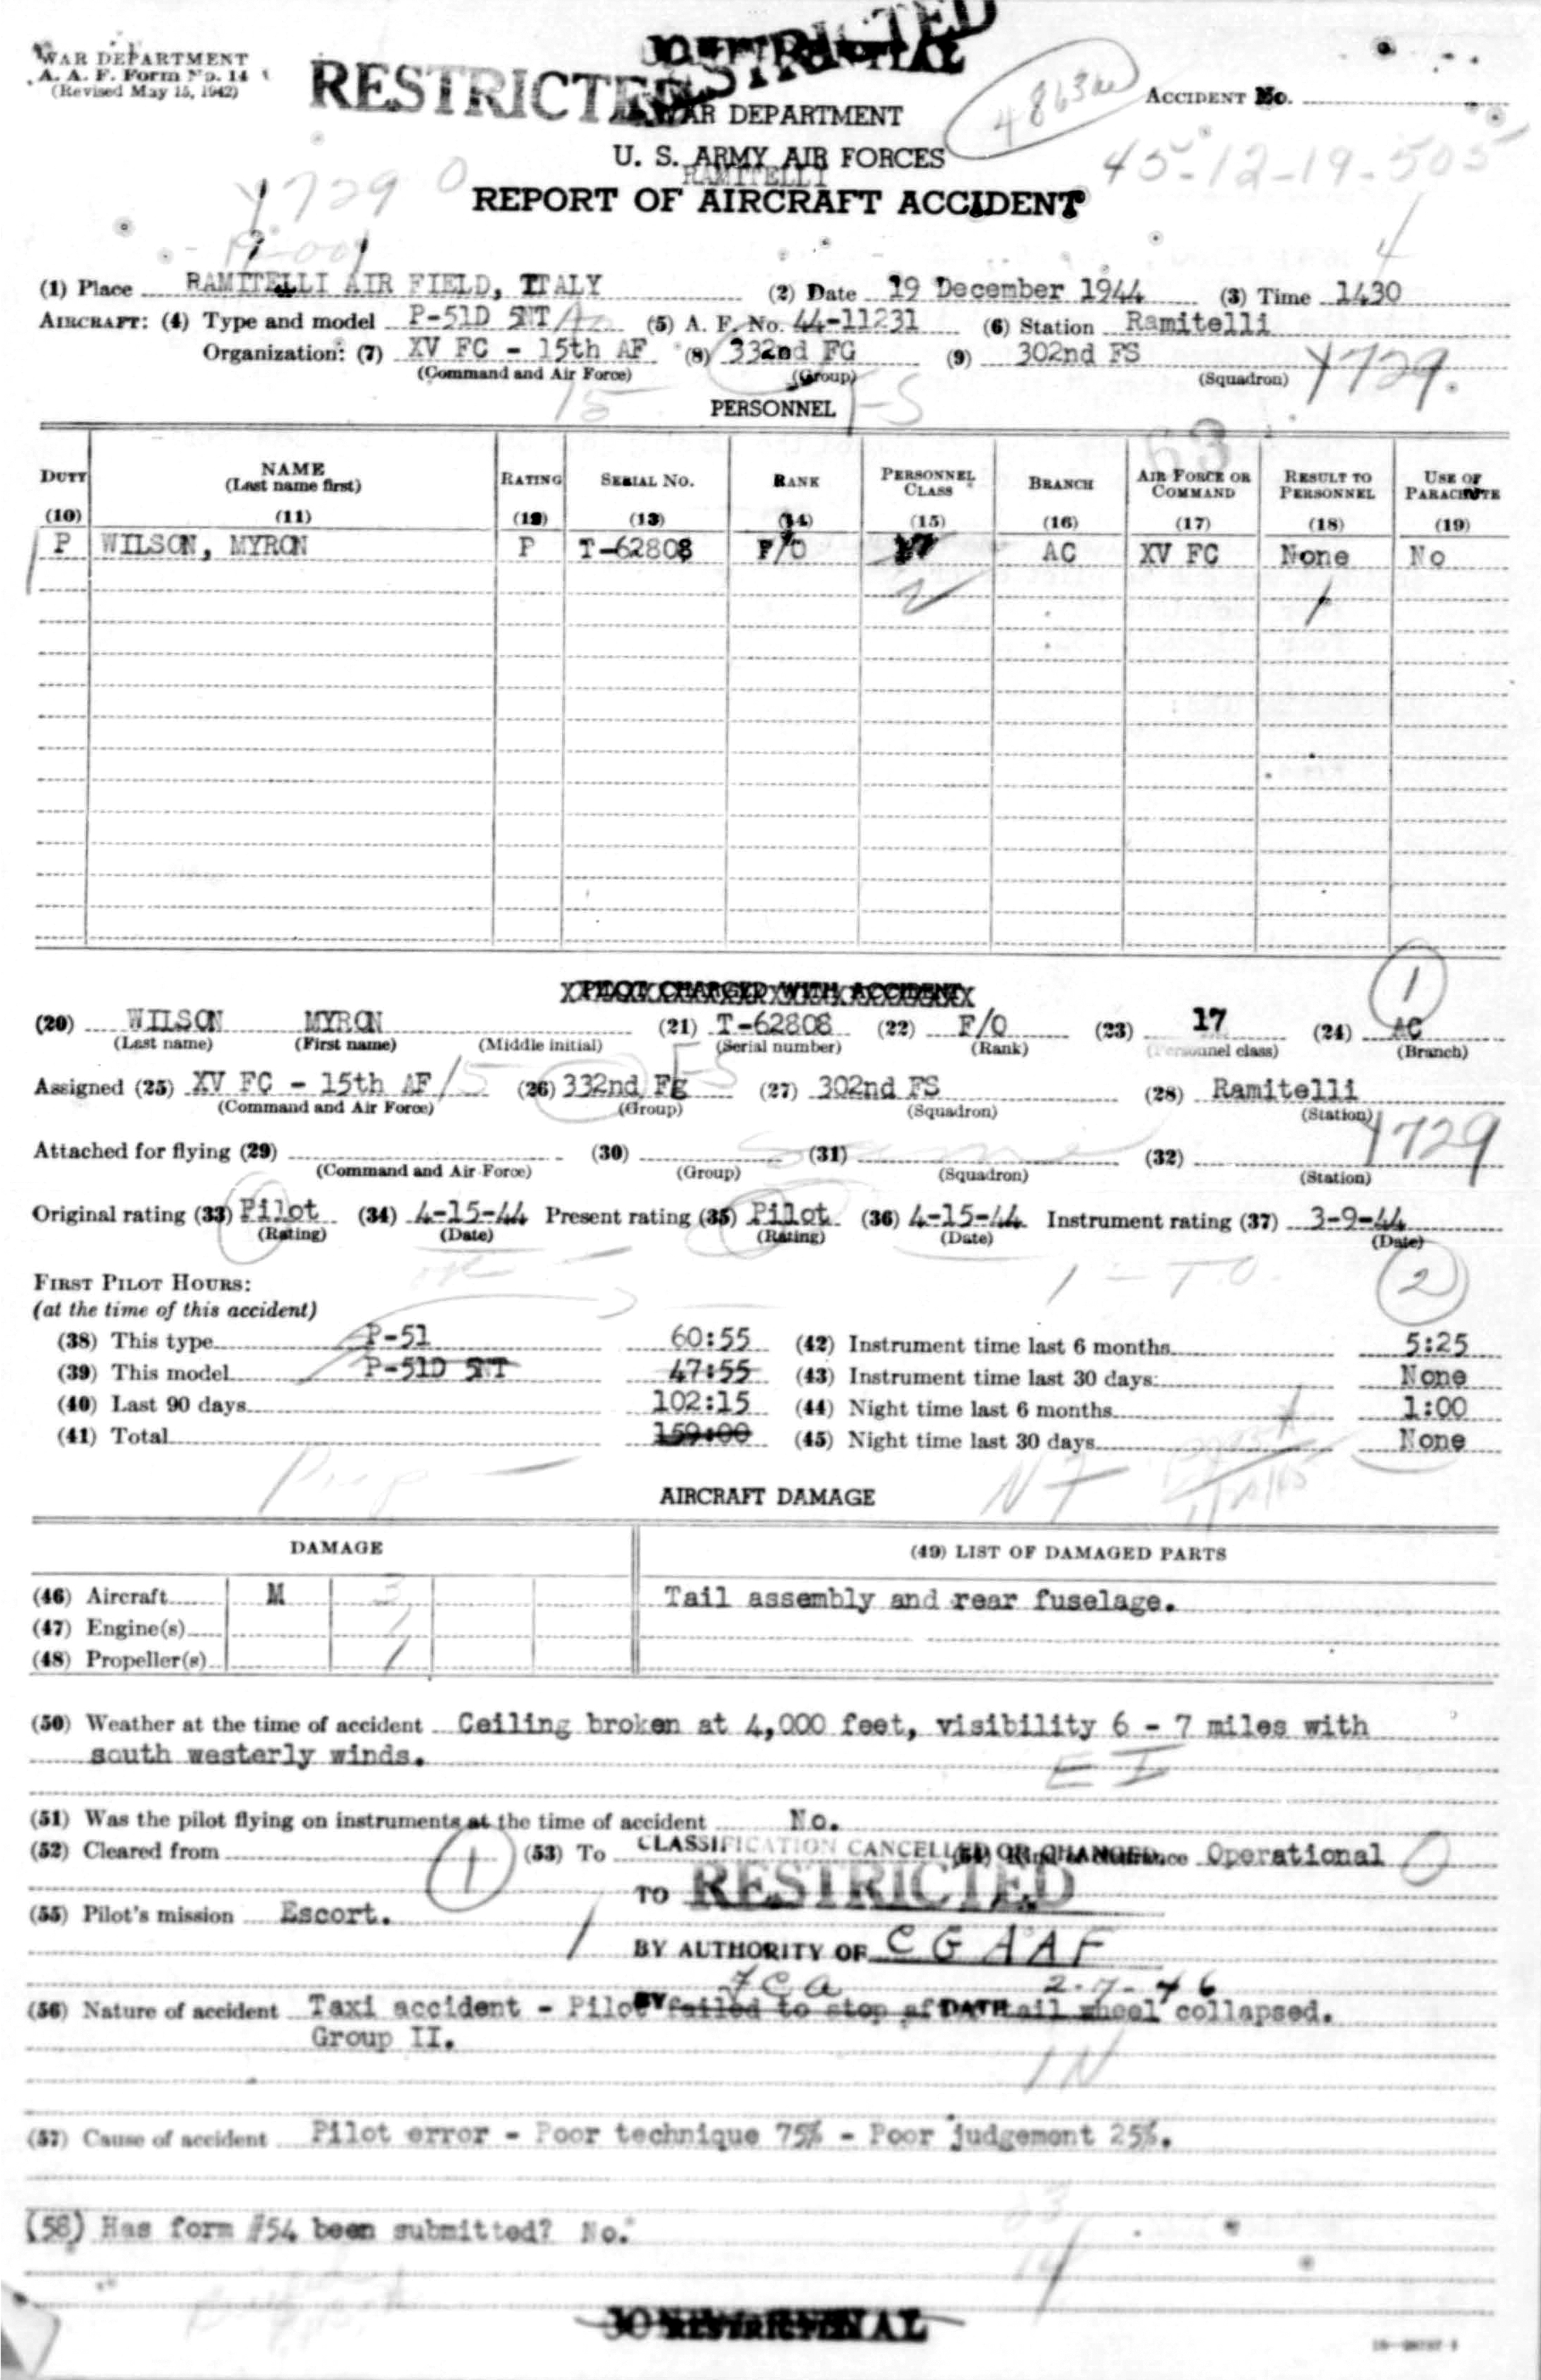 WAR DEPARTMENT
A. A. F. Form No. 14
(Revised May 15, 1942)
RESTRICTED
RESTRICTED
WAR DEPARTMENT
ACCIDENT No.
U. S. ARMY AIR FORCES
45-12-19-505
RAMITELLI
REPORT OF AIRCRAFT ACCIDENT
Y729 0
(1) Place RAMITELLI AIR FIELD, ITALY (2) Date 19 December 1944 (3) Time 1430
AIRCRAFT: (4) Type and model P-51D 5NT (5) A. F. No. 44-11231 (6) Station Ramitelli
Organization: (7) XV FC - 15th AF (8) 332nd FG (9) 302nd FS Y729.
(Command and Air Force) (Group) (Squadron)
15 FS
PERSONNEL
63
DUTY NAME (Last name first) RATING SERIAL NO. RANK PERSONNEL CLASS BRANCH AIR FORCE OR COMMAND RESULT TO PERSONNEL USE OF PARACHUTE
(10) (11) (12) (13) (14) (15) (16) (17) (18) (19)
P WILSON, MYRON P T-62808 F/O 17 AC XV FC None No
2
1
PILOT CHARGED WITH ACCIDENT
(20) WILSON MYRON (21) T-62808 (22) F/O (23) 17 (24) AC
(Last name) (First name) (Middle initial) (Serial number) (Rank) (Personnel class) (Branch)
Assigned (25) XV FC - 15th AF/5 (26) 332nd Fg FS (27) 302nd FS (28) Ramitelli
(Command and Air Force) (Group) (Squadron) (Station)
Y729
Attached for flying (29) (30) same (31) (32)
(Command and Air Force) (Group) (Squadron) (Station)
Original rating (33) Pilot (34) 4-15-44 Present rating (35) Pilot (36) 4-15-44 Instrument rating (37) 3-9-44
(Rating) (Date) (Rating) (Date) (Date)
FIRST PILOT HOURS:
1 - TO
2
(at the time of this accident)
(38) This type P-51 60:55 (42) Instrument time last 6 months 5:25
(39) This model P-51D 5NT 47:55 (43) Instrument time last 30 days: None
(40) Last 90 days 102:15 (44) Night time last 6 months 1:00
(41) Total 159:00 (45) Night time last 30 days None
AIRCRAFT DAMAGE
DAMAGE (49) LIST OF DAMAGED PARTS
(46) Aircraft M 3 Tail assembly and rear fuselage.
(47) Engine(s) 1
(48) Propeller(s) 1
(50) Weather at the time of accident Ceiling broken at 4,000 feet, visibility 6 - 7 miles with
south westerly winds.
E I
(51) Was the pilot flying on instruments at the time of accident No.
(52) Cleared from 1 (53) To CLASSIFICATION CANCELLED OR CHANGED Operational 0
TO RESTRICTED
(55) Pilot's mission Escort.
BY AUTHORITY OF C G A A F
BY DATE 2-7-46
(56) Nature of accident Taxi accident - Pilot failed to stop after tail wheel collapsed.
Group II.
IN
(57) Cause of accident Pilot error - Poor technique 75% - Poor judgement 25%.
(58) Has form #54 been submitted? No.